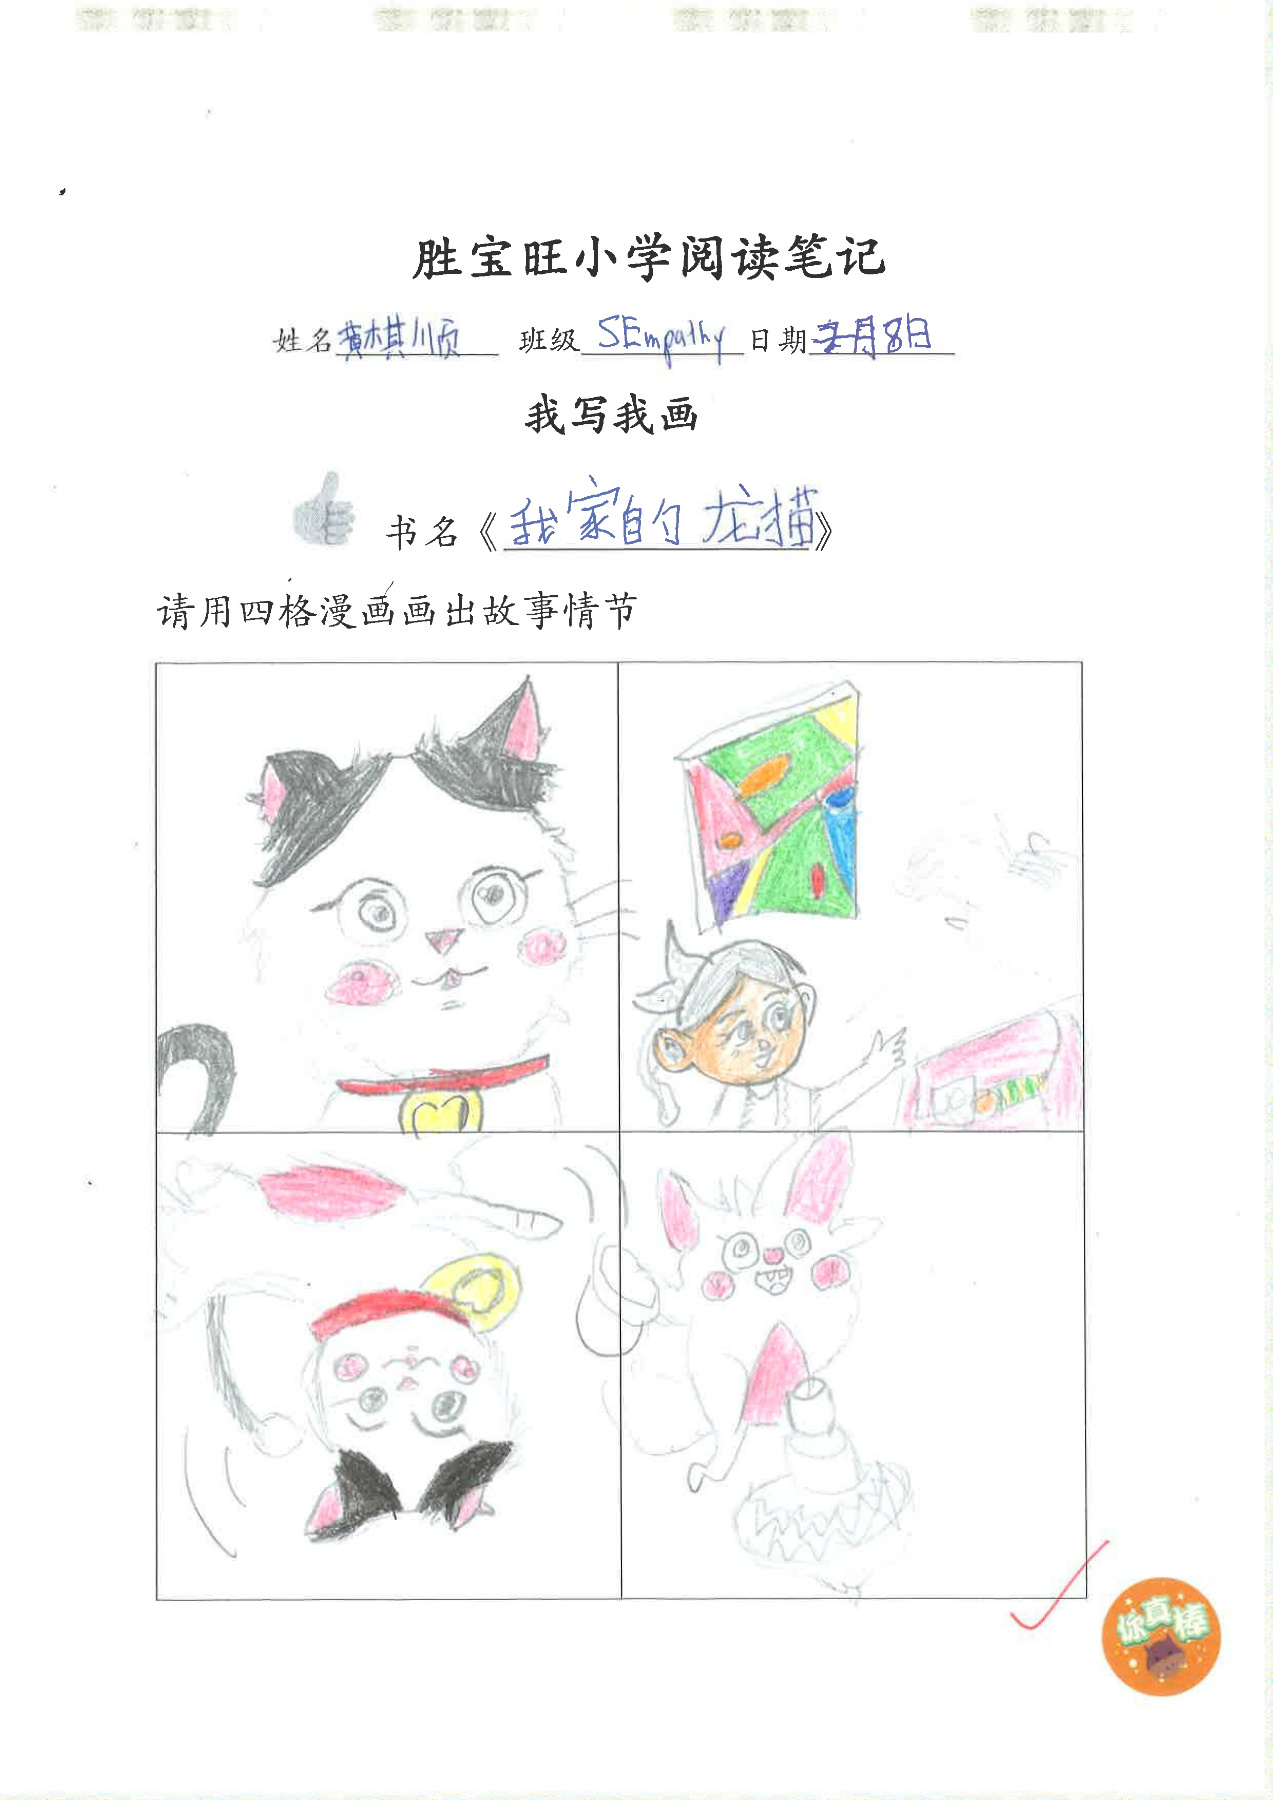 胜宝旺小学阅读笔记
姓名黄棋顺 班级 5Empathy 日期 月8日
我写我画
书名《我家的龙猫》
请用四格漫画画出故事情节
你真棒